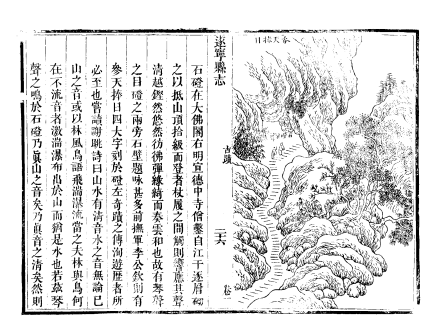 參天捧日
遂寧縣志
古蹟
卷一
石磴在大佛閣右明宣德中寺僧鑿自江干逐層砌
之以抵山頂拾級而登者杖履之間觸則響應其聲
清越鏗然悠然彷彿彈綠綺而奏雲和也故有琴聲
之目磴之兩旁石壁題咏甚多前撫軍李公欽則有
參天捧日四大字刻於磴左奇蹟之傳洵遊歷者所
必至也嘗讀謝眺詩曰山水有清音水之音無論已
山之音或以林風鳥語飛湍瀑流當之夫林與鳥何
在不流音者激湍瀑布出於山而猶是水也若琴
聲之鳴於石磴乃眞山之音矣乃眞音之清矣然則